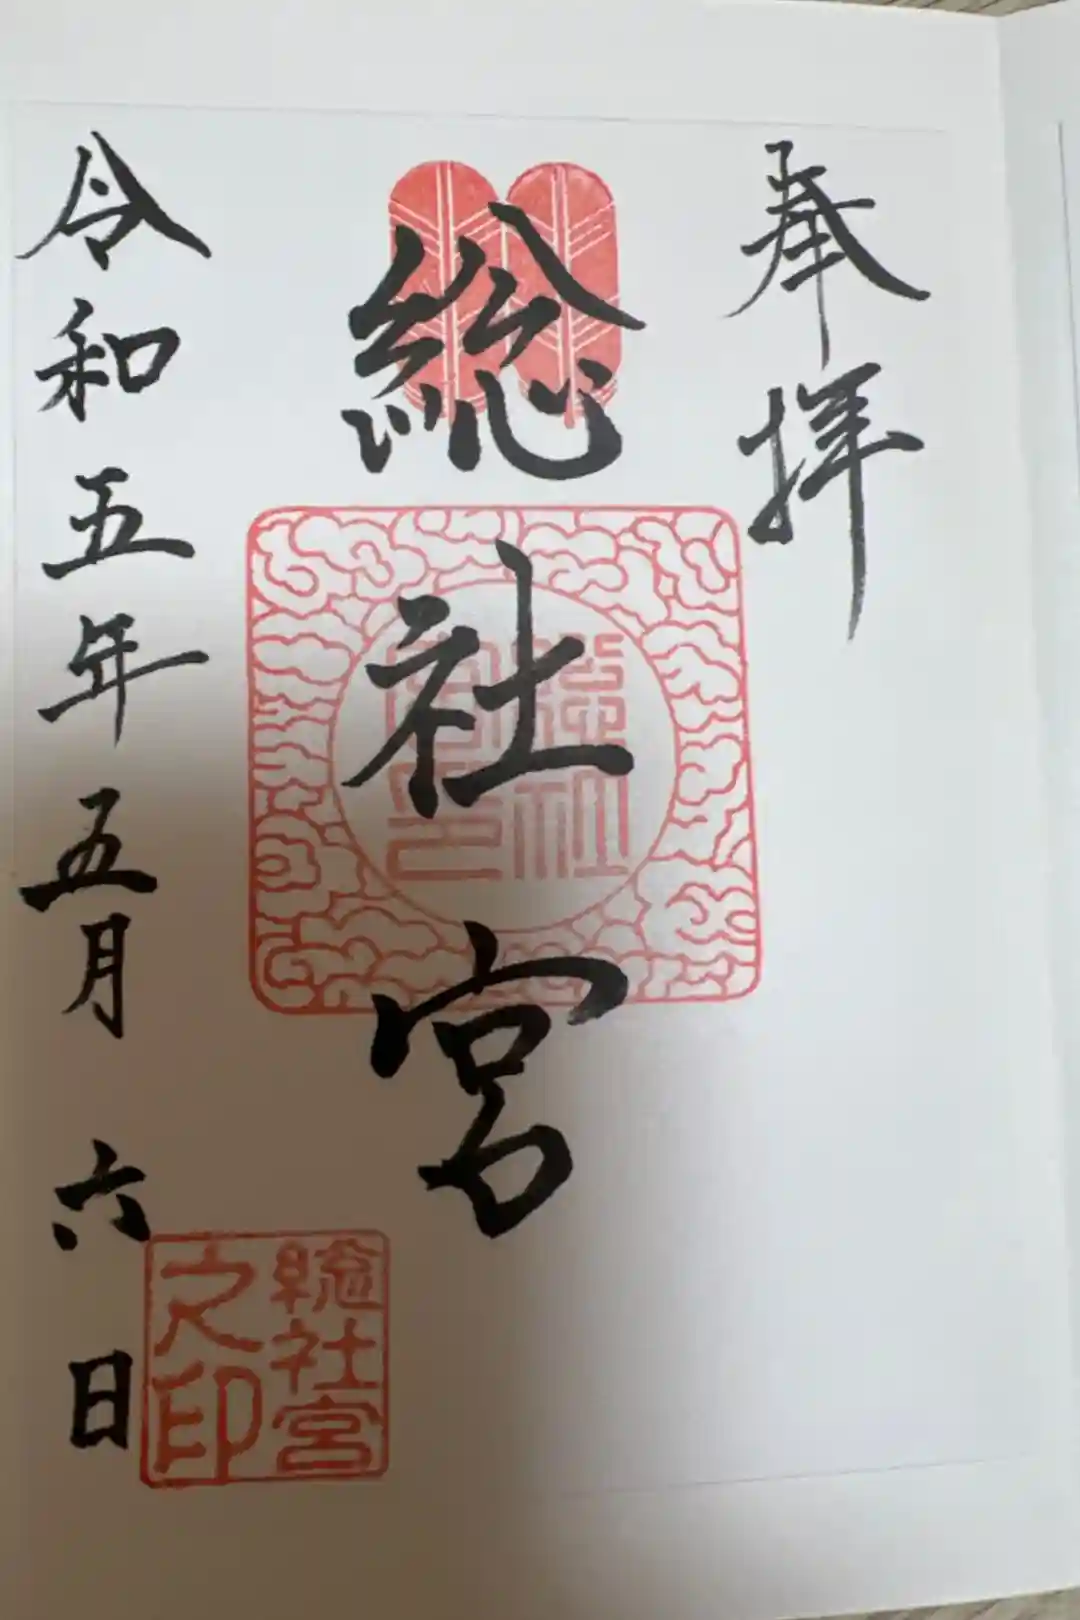 奉拝
総社宮
総社宮印
令和五年五月六日
総社宮
之印